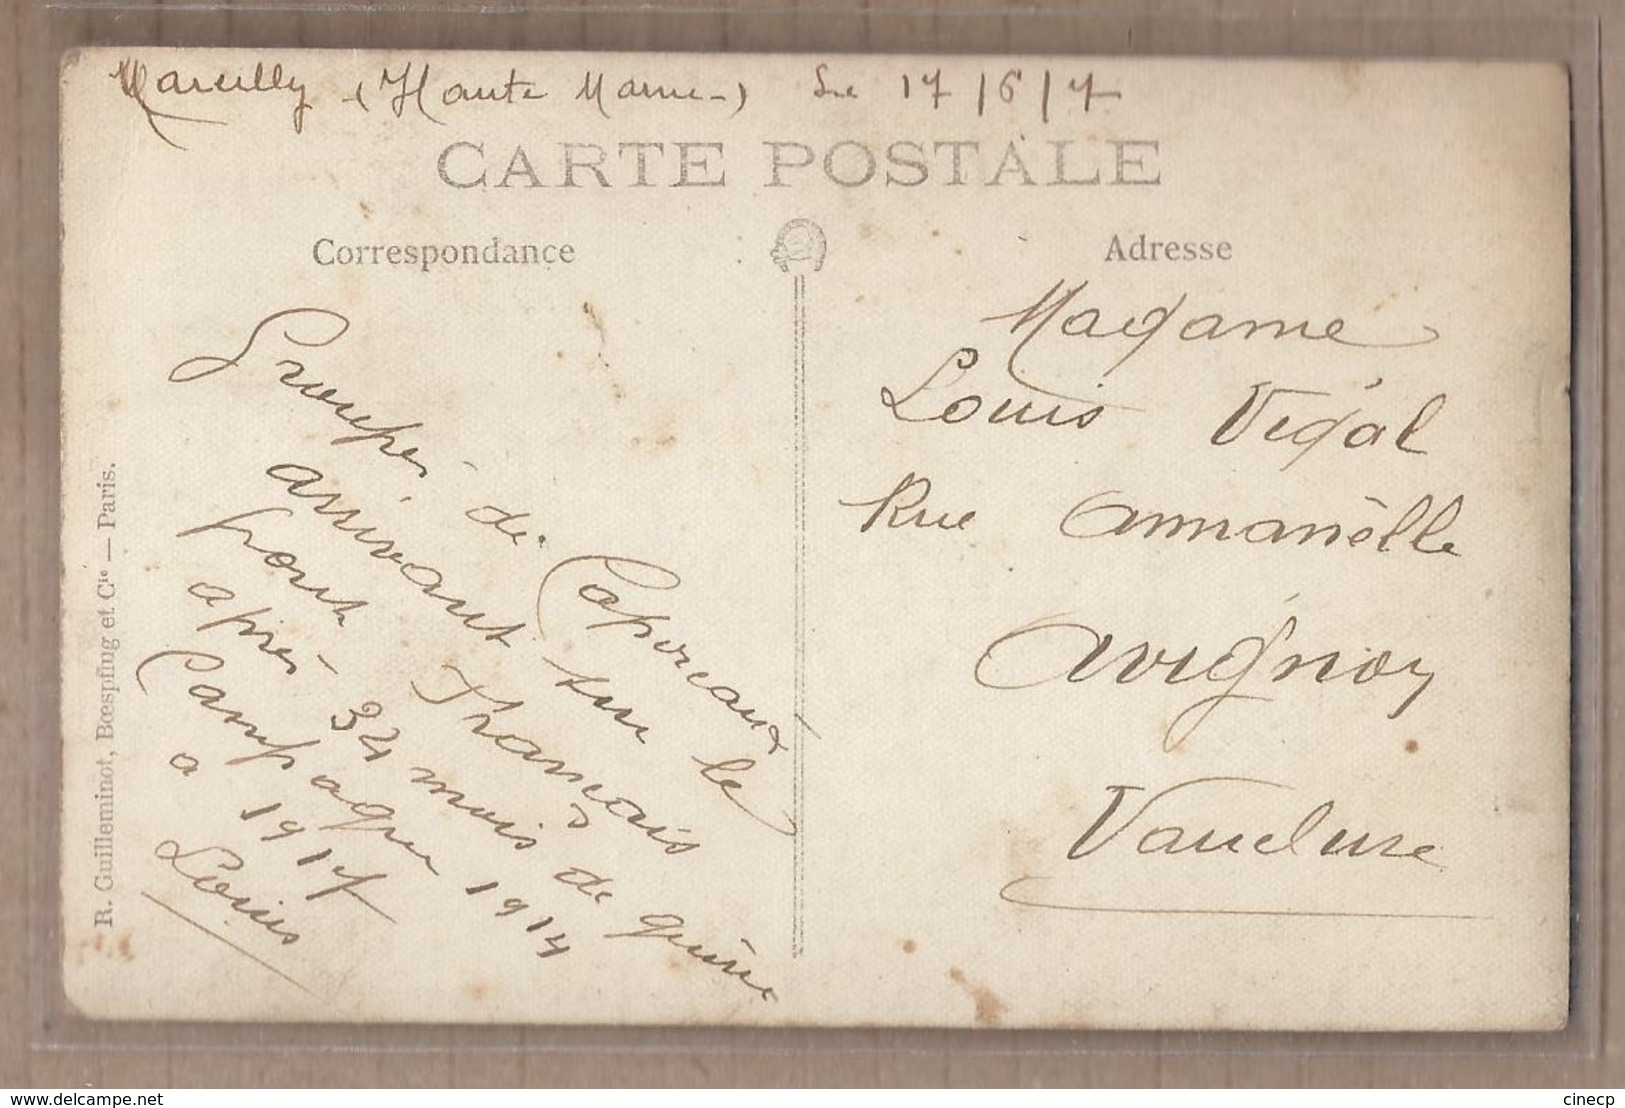 Marcilly (Haute Marne) Le 17/6/17
CARTE POSTALE
Correspondance
Adresse
Groupes de Caporaux
arrivant sur le
front Français
après 32 mois de guerre
Campagne 1914
a 1917
Louis
Madame
Louis Vidal
Rue Annanèlle
Avignon
Vaucluse
R. Guilleminot, Bœspflug et Cie — Paris.
delcampe.net
cinecp